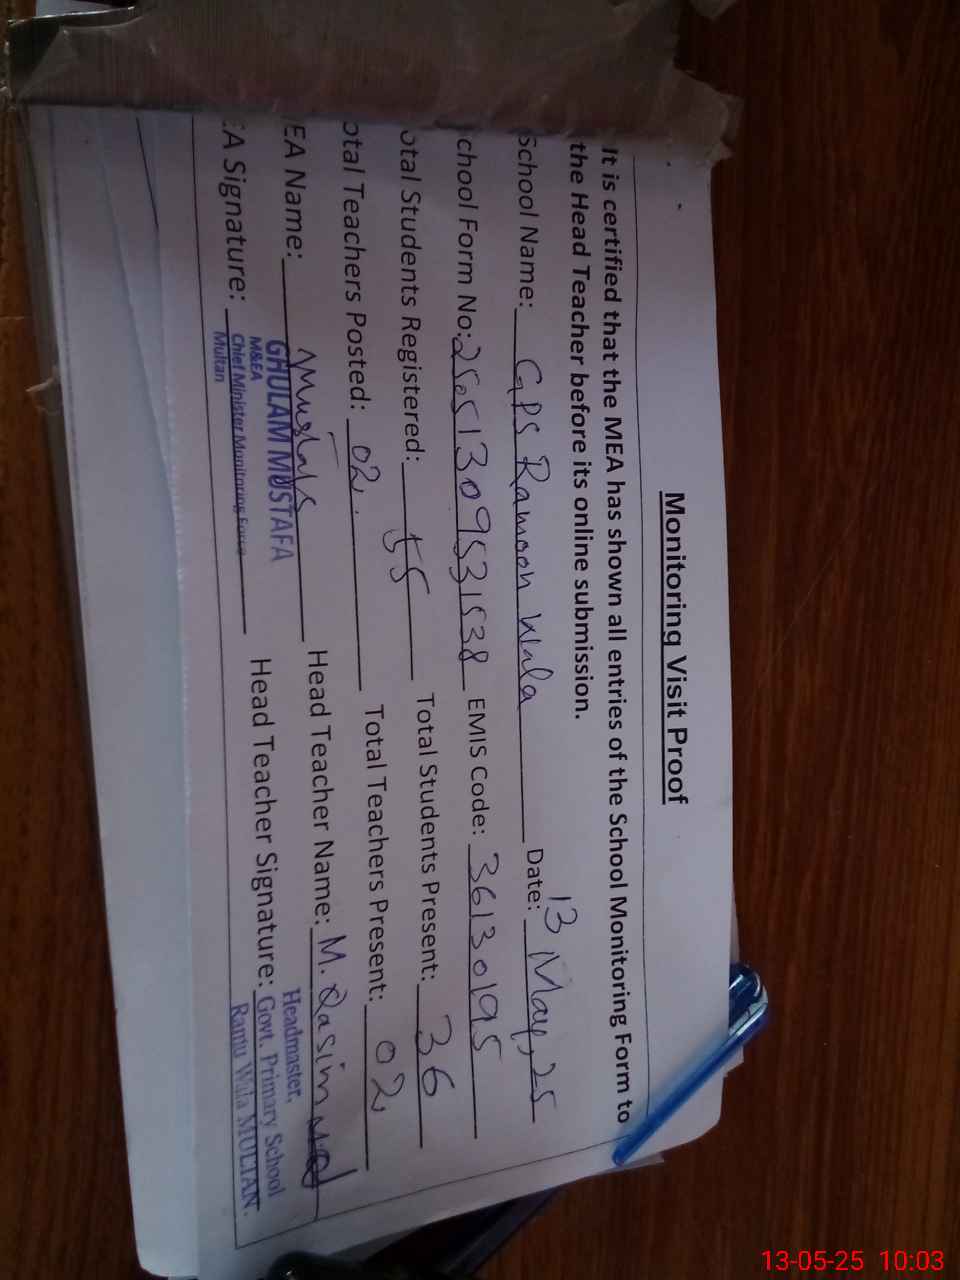 Monitoring Visit Proof
It is certified that the MEA has shown all entries of the School Monitoring Form to
the Head Teacher before its online submission.
School Name: GPS Ramoon Wala Date: 13 May, 25
chool Form No: 25051309531538 EMIS Code: 36130195
otal Students Registered: 55 Total Students Present: 36
otal Teachers Posted: 02. Total Teachers Present: 02
EA Name: Mustafa Head Teacher Name: M. Qasim
EA Signature: Head Teacher Signature:
GHULAM MUSTAFA
M&EA
Chief Minister Monitoring Force
Multan
Headmaster,
Govt. Primary School
Ramu Wala MULTAN.
13-05-25 10:03